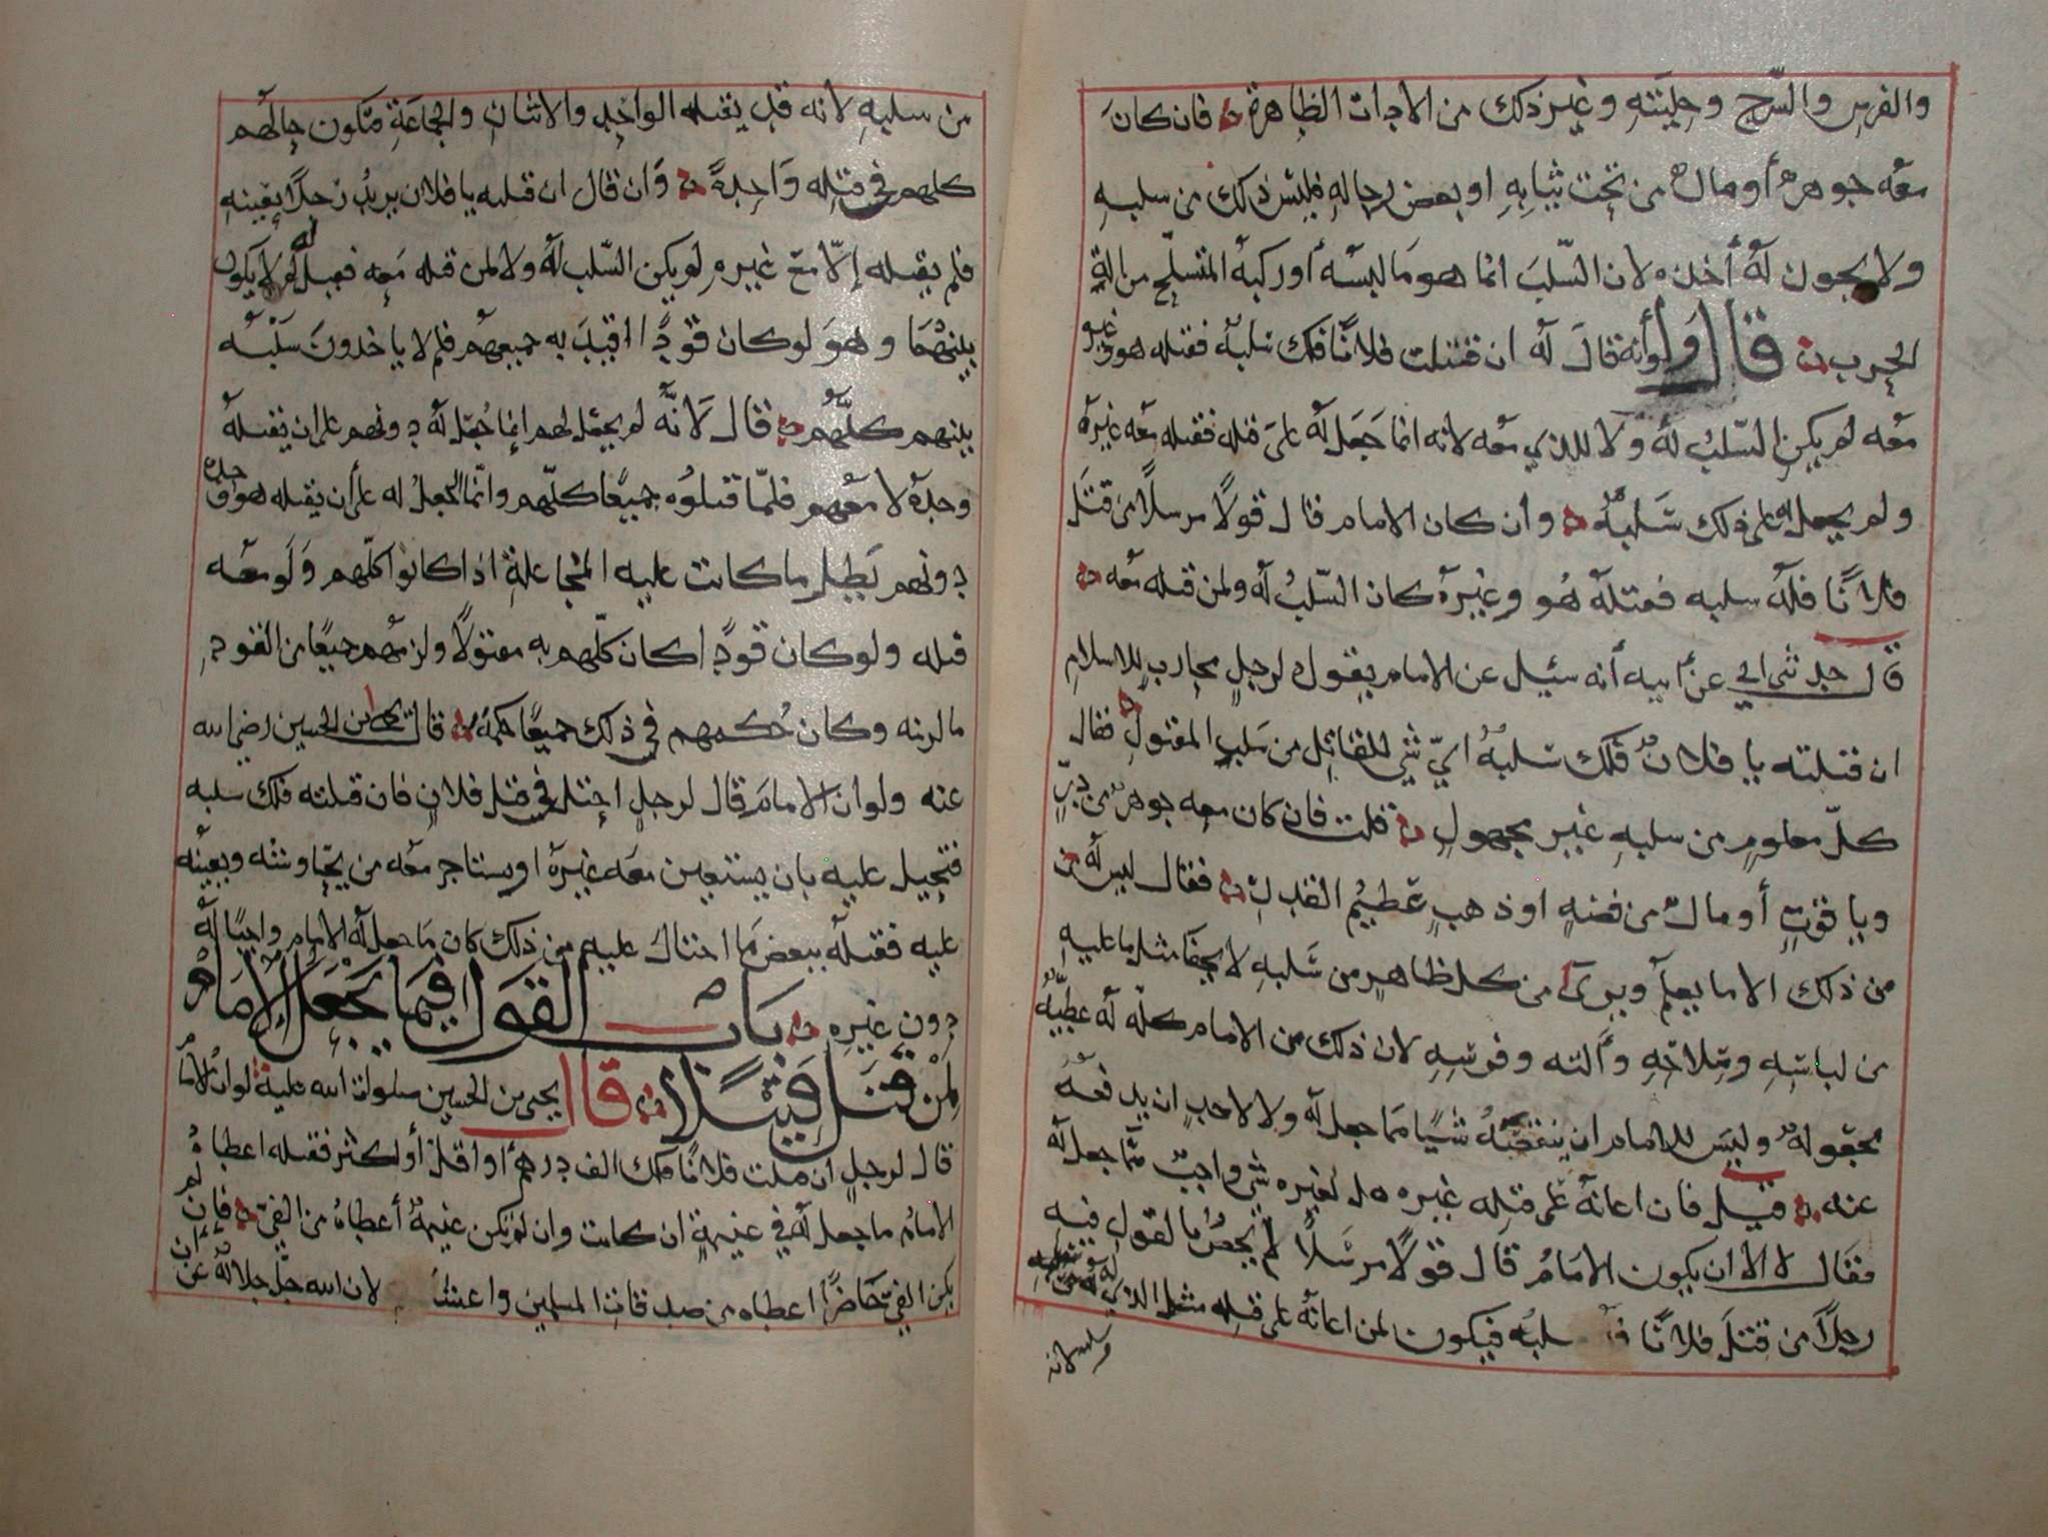 والفرس والسّرج وحليته وغير ذلك من الاداة الظاهرة فان كان
معه جوهر أو مال من تحت ثيابه او بعض رحاله فليس ذلك من سلبه
ولا يجوز له أخذه لان السّلب انما هو ما لبسه أو ركبه المتسلح من الة
الحرب قال ولو أنه قال له ان قتلت فلانًا فلك سلبه فقتله هو وغيره
معه لم يكن السّلب له ولا للذي معه لانه انما جعل له على قتله فقتله معه غيره
ولم يجعل له على ذلك سلبه وان كان الامام قال قولًا مرسلًا من قتل
فلانًا فله سلبه فقتله هو وغيره كان السّلب له ولمن قتله معه
قال حدثني ابي عن أبيه أنه سئل عن الامام يقول لرجل محارب للاسلام
ان قتلته يا فلان فلك سلبه ايّ شي للقاتل من سلب المقتول فقال
كلّ معلوم من سلبه غير مجهول قلت فان كان معه جوهر من درّ
وياقوت أو مال من فضة او ذهب عظيم القدر فقال ليس له
من ذلك الا ما يعلم ويرى من كل ظاهر من سلبه لا يخفا مثل ما عليه
من لباسه وسلاحه وآلته وفرسه لان ذلك من الامام كلّه له عطيّة
بحق قوله وليس للامام ان ينقصه شيًا مما جعل له ولا لاحد ان يدفعه
عنه قيل فان اعانه على قتله غيره هل لغيره شي واجب مما جعل له
فقال لا الا ان يكون الامام قال قولًا مرسلًا لم يخص بالقول فيه
رجلًا من قتل فلانًا سلبه فيكون لمن اعانه على قتله مثل الذي له من
سلبه لانه
من سلبه لانه قد يقتله الواحد والاثنان والجماعة فتكون حالهم
كلهم في قتله واحدة وان قال ان قتلته يا فلان يريد رجلًا بعينه
فلم يقتله إلّا مع غيره لم يكن السّلب له ولا لمن قتله معه فقيل له لم لا يكون
بينهما وهو لو كان قودًا اقيد به جميعهم فلم لا ياخذون سلبه
بينهم كلّهم قال لانّه لم يجعل لهم إنما جعل له دونهم على ان يقتله
وحده لا معهم فلمّا قتلوه جميعًا كلّهم وانّما الجعل له على أن يقتله هو وحده
دونهم بطل ما كانت عليه المجاعلة اذا كانوا كلّهم ولو معه
قتله ولو كان قودًا كان كلّهم به مقتولًا ولزمهم جميعًا من القود
ما لزمه وكان حكمهم في ذلك جميعًا حكمه قال يحيى بن الحسين رضي الله
عنه ولو ان الامام قال لرجل احتل في قتل فلان فان قتلته فلك سلبه
فتحيل عليه بان يستعين معه غيره او يستاجر معه من يحاوشه ويعينه
عليه فقتله ببعض ما احتال عليه من ذلك كان ما جعل له الامام واجبًا له
دون غيره باب القول فيما يجعل الامام
لمن قتل قتيلا قال يحيى بن الحسين صلوات الله عليه لو ان الامام
قال لرجل ان قتلت فلانًا فلك الف درهم أو اقل أو اكثر فقتله اعطاه
الامام ما جعل له في غنيمة ان كانت وان لم تكن غنيمة أعطاه من الفيّ فإن لم
يكن الفيّ حاضرًا اعطاه من صدقات المسلمين لان الله جلّ جلاله عن ان